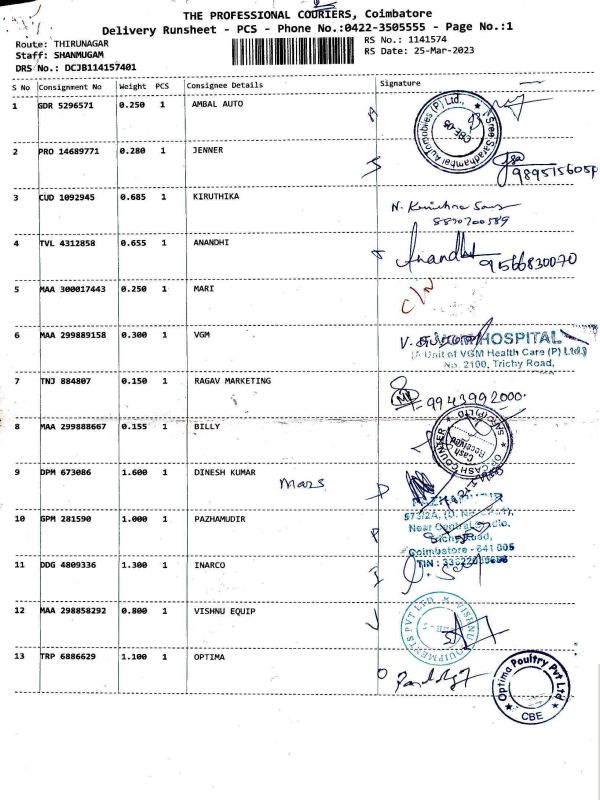 THE PROFESSIONAL COURIERS, Coimbatore
Delivery Runsheet - PCS - Phone No.:0422-3505555 - Page No.:1
Route: THIRUNAGAR
Staff: SHANMUGAM
DRS No.: DCJB114157401
RS No.: 1141574
RS Date: 25-Mar-2023
S No Consignment No Weight PCS Consignee Details Signature
1 GDR 5296571 0.250 1 AMBAL AUTO
Sree Saradhambal Automobiles (P) Ltd.,
CBE
2 PRO 14689771 0.280 1 JENNER
3 CUD 1092945 0.685 1 KIRUTHIKA
8870700589
4 TVL 4312858 0.655 1 ANANDHI
Anandhi 9566830070
5 MAA 300017443 0.250 1 MARI
C/N
6 MAA 299889158 0.300 1 VGM
HOSPITAL
(A Unit of VGM Health Care (P) Ltd.)
No. 2100, Trichy Road,
7 TNJ 884807 0.150 1 RAGAV MARKETING
9943992000
8 MAA 299888667 0.155 1 BILLY
CASH COUNTER
Cash
Received
9 DPM 673086 1.600 1 DINESH KUMAR
Mars
10 GPM 281590 1.000 1 PAZHAMUDIR
Near Central Studio,
Trichy Road,
Coimbatore - 641 005
TIN :
11 DDG 4809336 1.300 1 INARCO
12 MAA 298858292 0.800 1 VISHNU EQUIP
VISHNU EQUIPMENTS PVT LTD
13 TRP 6886629 1.100 1 OPTIMA
Optima Poultry Pvt Ltd
CBE